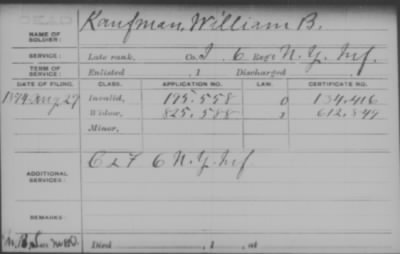 NAME OF SOLDIER: Kaufman, William B.
SERVICE: Late rank, Co. I, 6 Reg't N.Y. Inf.
TERM OF SERVICE: Enlisted , 1 Discharged , 1
DATE OF FILING. CLASS. APPLICATION NO. LAW. CERTIFICATE NO.
1874 Aug 27 Invalid, 195.558 134.416
Widow, 825.588 612.849
Minor,
ADDITIONAL SERVICES: C & F 6 N.Y. Inf
REMARKS:
Died , 1 , at